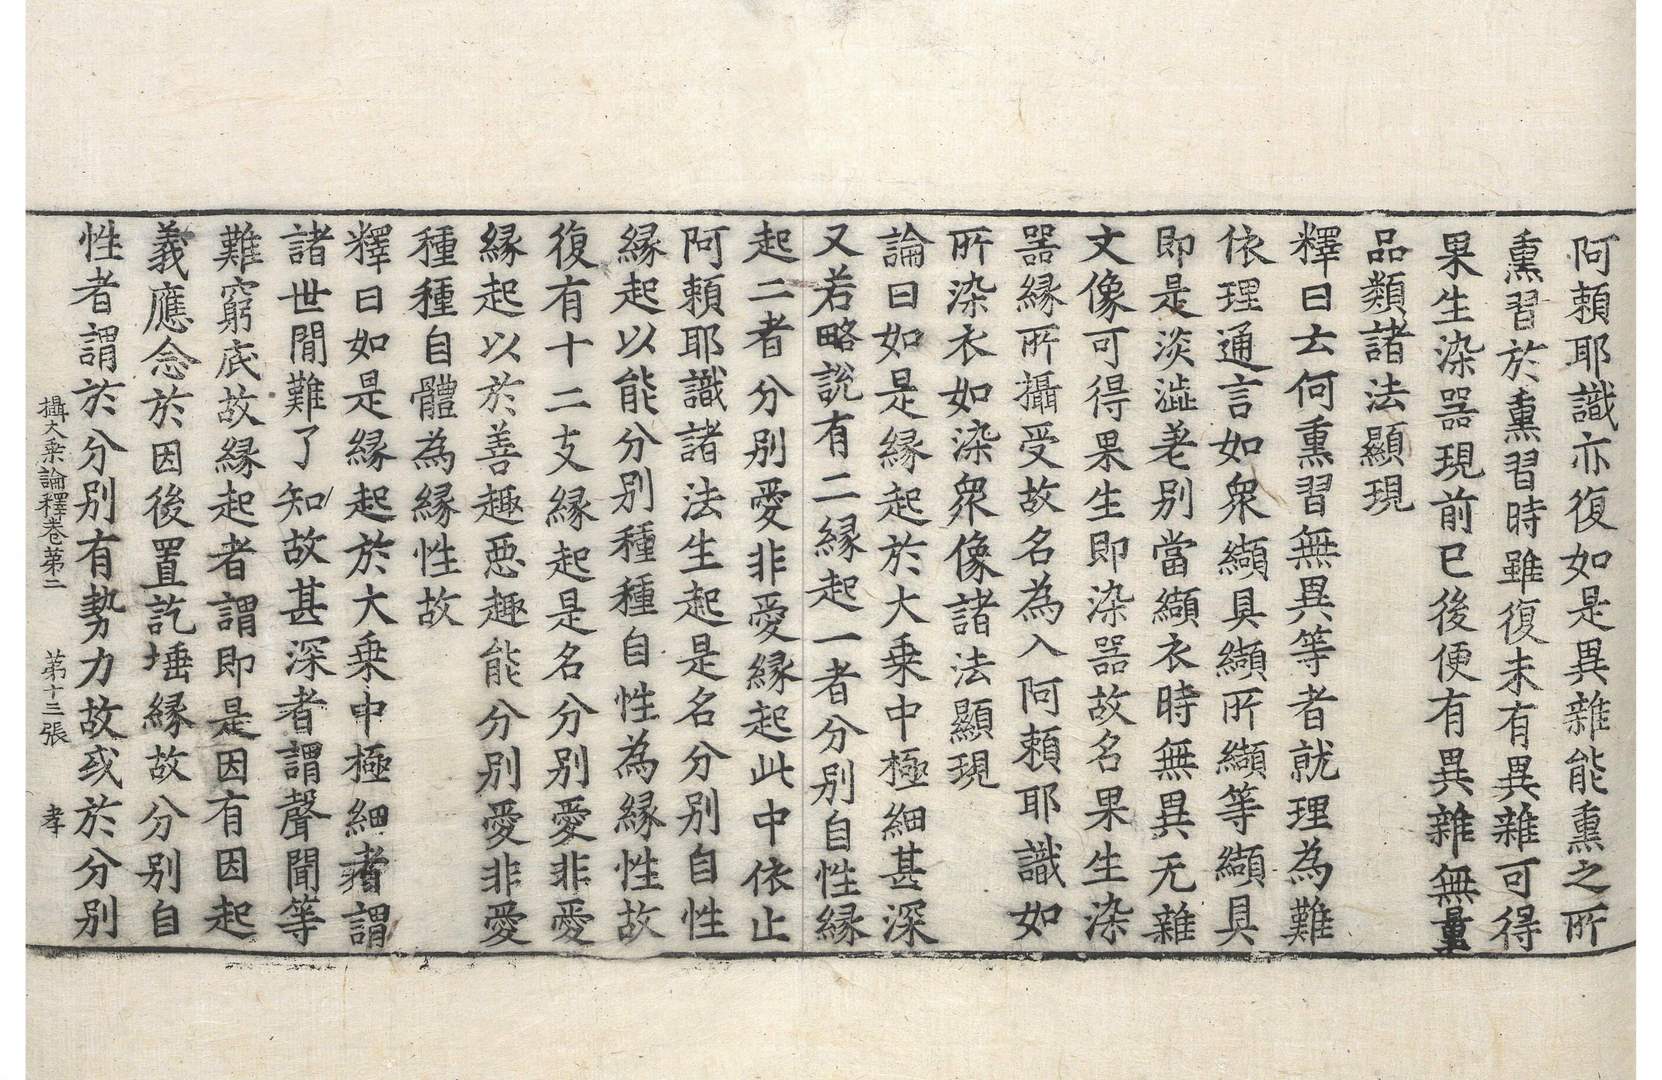 阿賴耶識亦復如是異雜能熏之所
熏習於熏習時雖復未有異雜可得
果生染器現前已後便有異雜無量
品類諸法顯現
釋曰云何熏習無異等者就理為難
依理通言如衆纈具纈所纈等纈具
即是淡澁差別當纈衣時無異无雜
文像可得果生即染器故名果生染
器緣所攝受故名為入阿賴耶識如
所染衣如染衆像諸法顯現
論曰如是緣起於大乗中極細甚深
又若略說有二緣起一者分別自性緣
起二者分別愛非愛緣起此中依止
阿賴耶識諸法生起是名分別自性
緣起以能分別種種自性為緣性故
復有十二支緣起是名分別愛非愛
緣起以於善趣惡趣能分別愛非愛
種種自體為緣性故
釋曰如是緣起於大乗中極細者謂
諸世閒難了知故甚深者謂聲聞等
難窮底故緣起者謂即是因有因起
義應念於因後置訖埵緣故分別自
性者謂於分別有勢力故或於分別
攝大乗論釋卷第二 第十三張 孝